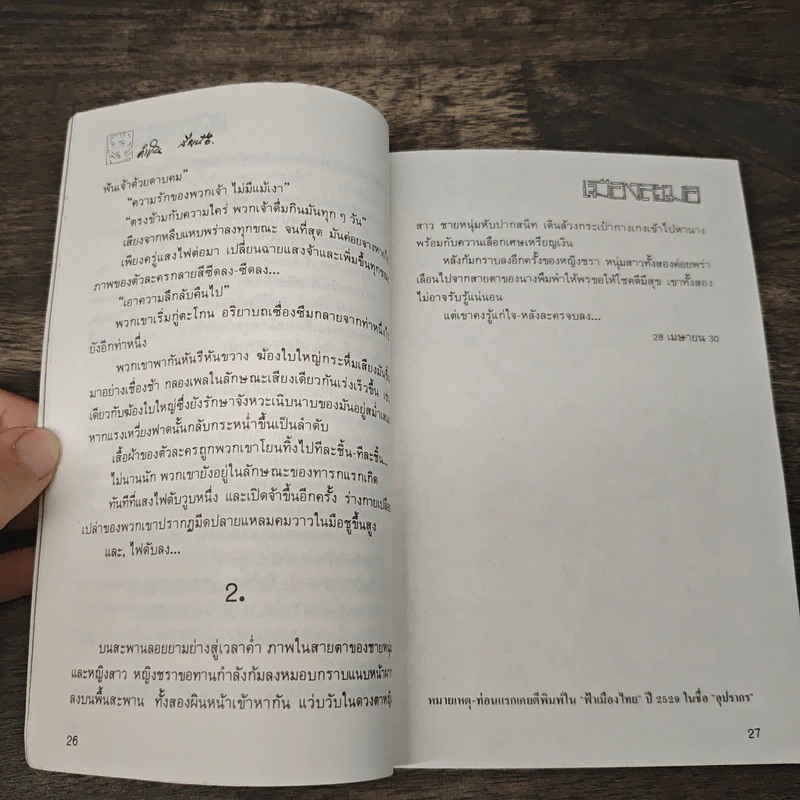 ฟันเจ้าด้วยดาบคม”
“ความรักของพวกเจ้า ไม่มีแม้เงา”
“ตรงข้ามกับความใคร่ พวกเจ้าดื่มกินมันทุก ๆ วัน”
เสียงจากหลืบแหบพร่าลงทุกขณะ จนที่สุด มันค่อยจางหาย
เพียงครู่แสงไฟต่อมา เปลี่ยนฉายแสงจ้าและเพิ่มขึ้นทุกขณะ
ภาพของตัวละครกลายสีซีดลง-ซีดลง...
“เอาความลึกลับคืนไป”
พวกเขาเริ่มกู่ตะโกน อริยาบถเชื่องซึมกลายจากท่าหนึ่งไป
ยังอีกท่าหนึ่ง
พวกเขาพากันหันรีหันขวาง ฆ้องใบใหญ่กระหึ่มเสียงมันขึ้น
มาอย่างเชื่องช้า กลองเพลในลักษณะเสียงเดียวกันเร่งเร็วขึ้น
เดียวกับฆ้องใบใหญ่ซึ่งยังรักษาจังหวะเนิบนาบของมันอยู่สม่ำเสมอ
หากแรงเหวี่ยงฟาดนั้นกลับกระหน่ำขึ้นเป็นลำดับ
เสื้อผ้าของตัวละครถูกพวกเขาโยนทิ้งไปทีละชิ้น-ทีละชิ้น...
ไม่นานนัก พวกเขายังอยู่ในลักษณะของทารกแรกเกิด
ทันทีที่แสงไฟดับวูบหนึ่ง และเปิดจ้าขึ้นอีกครั้ง ร่างกายเปลือย
เปล่าของพวกเขาปรากฏมีดปลายแหลมคมวาวในมือชูขึ้นสูง
และ, ไฟดับลง...
2.
บนสะพานลอยยามย่างสู่เวลาค่ำ ภาพในสายตาของชายหนุ่ม
และหญิงสาว หญิงชราขอทานกำลังก้มลงหมอบกราบแนบหน้าผาก
ลงบนพื้นสะพาน ทั้งสองผินหน้าเข้าหากัน แว่บวับในดวงตาหญิง
26
เมืองละเมอ
สาว ชายหนุ่มหับปากสนิท เดินล้วงกระเป๋ากางเกงเข้าไปหานาง
พร้อมกับควานเลือกเศษเหรียญเงิน
หลังก้มกราบลงอีกครั้งของหญิงชรา หนุ่มสาวทั้งสองค่อยพร่า
เลือนไปจากสายตาของนางพึมพำให้พรขอให้โชคดีมีสุข เขาทั้งสอง
ไม่อาจรับรู้แน่นอน
แต่เขาคงรู้แก่ใจ-หลังละครจบลง...
28 เมษายน 30
หมายเหตุ-ท่อนแรกเคยตีพิมพ์ใน “ฟ้าเมืองไทย” ปี 2529 ในชื่อ “อุปรากร”
27